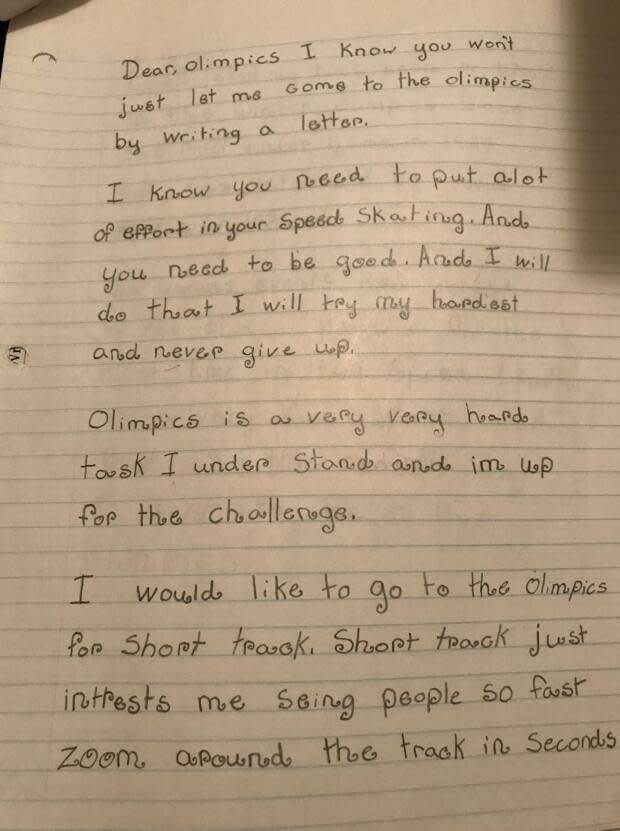 Dear, olimpics I know you won't
just let me come to the olimpics
by writing a letter.
I know you need to put alot
of effort in your Speed Skating. And
you need to be good. And I will
do that I will try my hardest
and never give up.
Olimpics is a very very hard
task I under stand and im up
for the challenge.
I would like to go to the Olimpics
for Short track. Short track just
intrests me Seing people so fast
Zoom around the track in Seconds